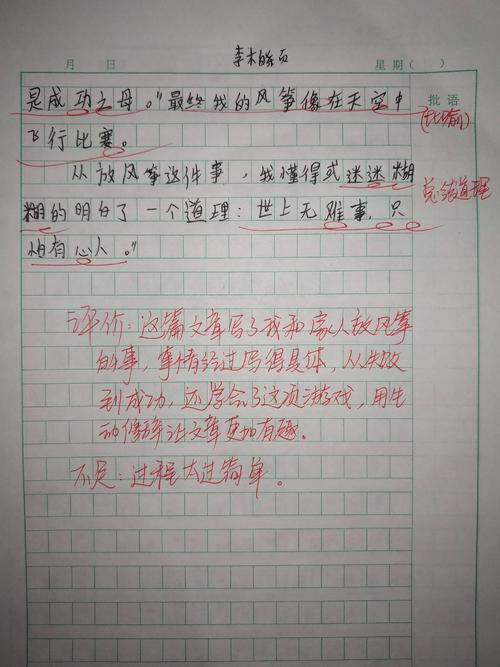 李木皓页
月 日 星期( )
是成功之母。"最终我的风筝像在天空中
批语
飞行比赛。
(比喻)
从放风筝这件事，我懂得或迷迷糊
糊的明白了一个道理：世上无难事，只
总结道理
怕有心人。"
评价：这篇文章写了我和家人放风筝
的事，事情经过写得具体，从失败
到成功，还学会了这项游戏，用生
动修辞让文章更加有趣。
不足：过程太过简单。